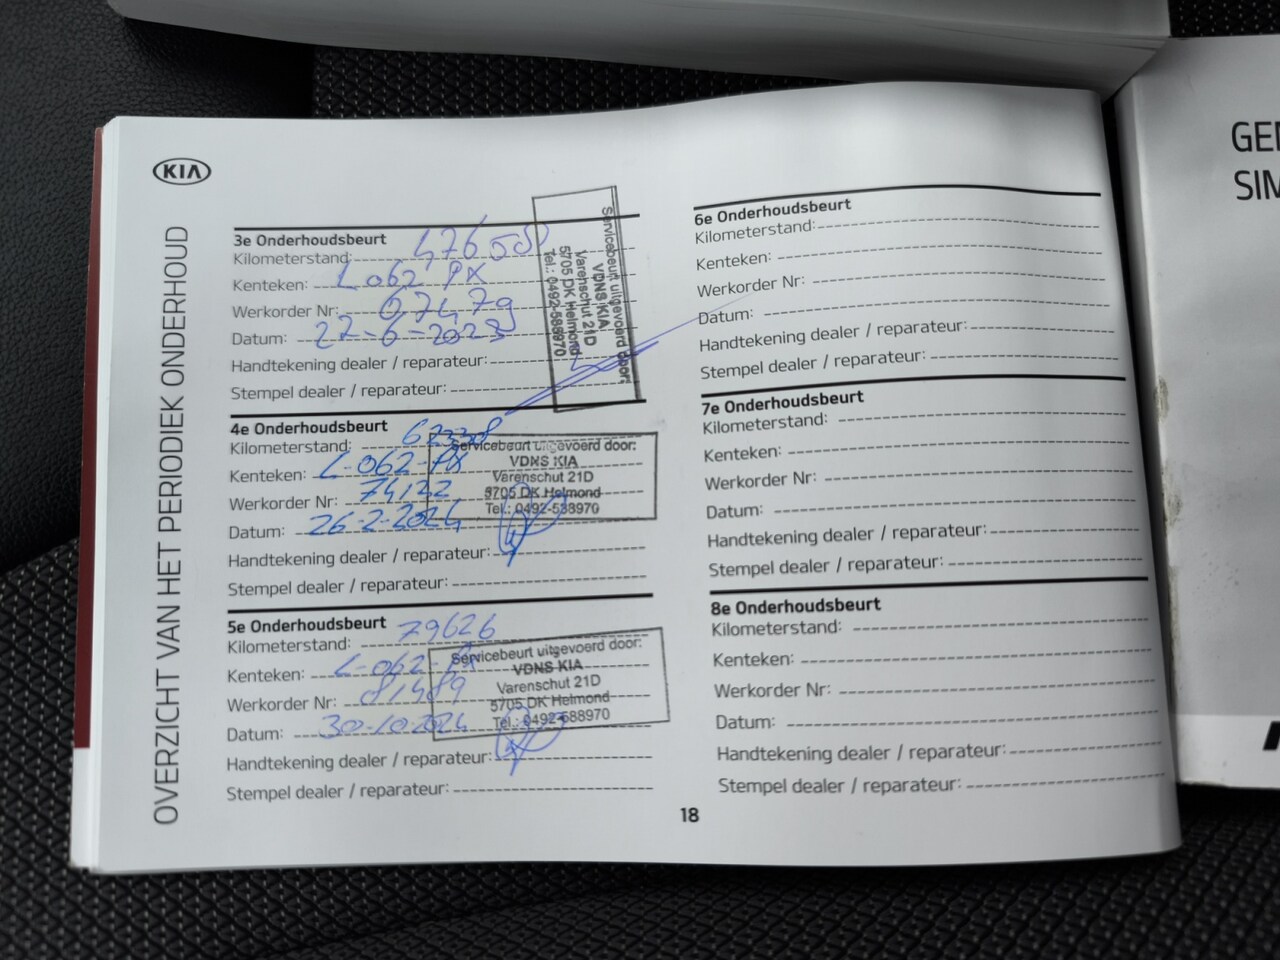 KIA
OVERZICHT VAN HET PERIODIEK ONDERHOUD
3e Onderhoudsbeurt
Kilometerstand: 47658
Kenteken: L-062-PX
Werkorder Nr: 67479
Datum: 27-6-2023
Handtekening dealer / reparateur:
Stempel dealer / reparateur:
Servicebeurt uitgevoerd door:
VDNS KIA
Varenschut 21D
5705 DK Helmond
Tel.: 0492-588970
4e Onderhoudsbeurt
Kilometerstand: 67338
Kenteken: L-062-PX
Werkorder Nr: 74122
Datum: 26-2-2024
Handtekening dealer / reparateur:
Stempel dealer / reparateur:
Servicebeurt uitgevoerd door:
VDNS KIA
Varenschut 21D
5705 DK Helmond
Tel.: 0492-588970
5e Onderhoudsbeurt
Kilometerstand: 79626
Kenteken: L-062-PX
Werkorder Nr: 81489
Datum: 30-10-2024
Handtekening dealer / reparateur:
Stempel dealer / reparateur:
Servicebeurt uitgevoerd door:
VDNS KIA
Varenschut 21D
5705 DK Helmond
Tel.: 0492-588970
6e Onderhoudsbeurt
Kilometerstand:
Kenteken:
Werkorder Nr:
Datum:
Handtekening dealer / reparateur:
Stempel dealer / reparateur:
7e Onderhoudsbeurt
Kilometerstand:
Kenteken:
Werkorder Nr:
Datum:
Handtekening dealer / reparateur:
Stempel dealer / reparateur:
8e Onderhoudsbeurt
Kilometerstand:
Kenteken:
Werkorder Nr:
Datum:
Handtekening dealer / reparateur:
Stempel dealer / reparateur:
18